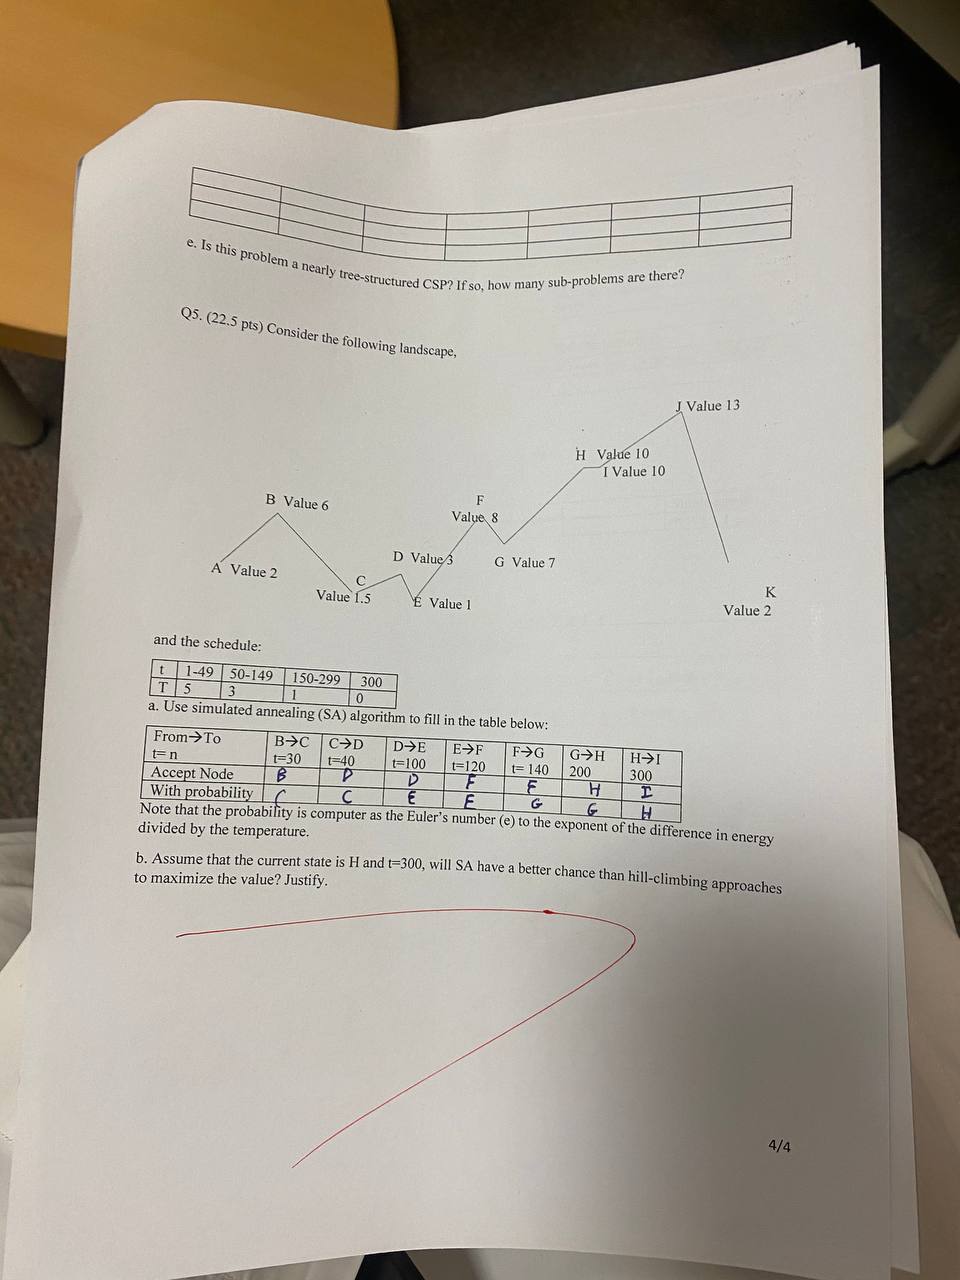 e. Is this problem a nearly tree-structured CSP? If so, how many sub-problems are there?
Q5. (22.5 pts) Consider the following landscape,
J Value 13
H Value 10
I Value 10
B Value 6
F
Value 8
D Value 3
G Value 7
A Value 2
C
Value 1.5
E Value 1
K
Value 2
and the schedule:
t 1-49 50-149 150-299 300
T 5 3 1 0
a. Use simulated annealing (SA) algorithm to fill in the table below:
From→To B→C C→D D→E E→F F→G G→H H→I
t= n t=30 t=40 t=100 t=120 t= 140 200 300
Accept Node B D D F F H I
With probability C C E E G G H
Note that the probability is computer as the Euler's number (e) to the exponent of the difference in energy
divided by the temperature.
b. Assume that the current state is H and t=300, will SA have a better chance than hill-climbing approaches
to maximize the value? Justify.
4/4